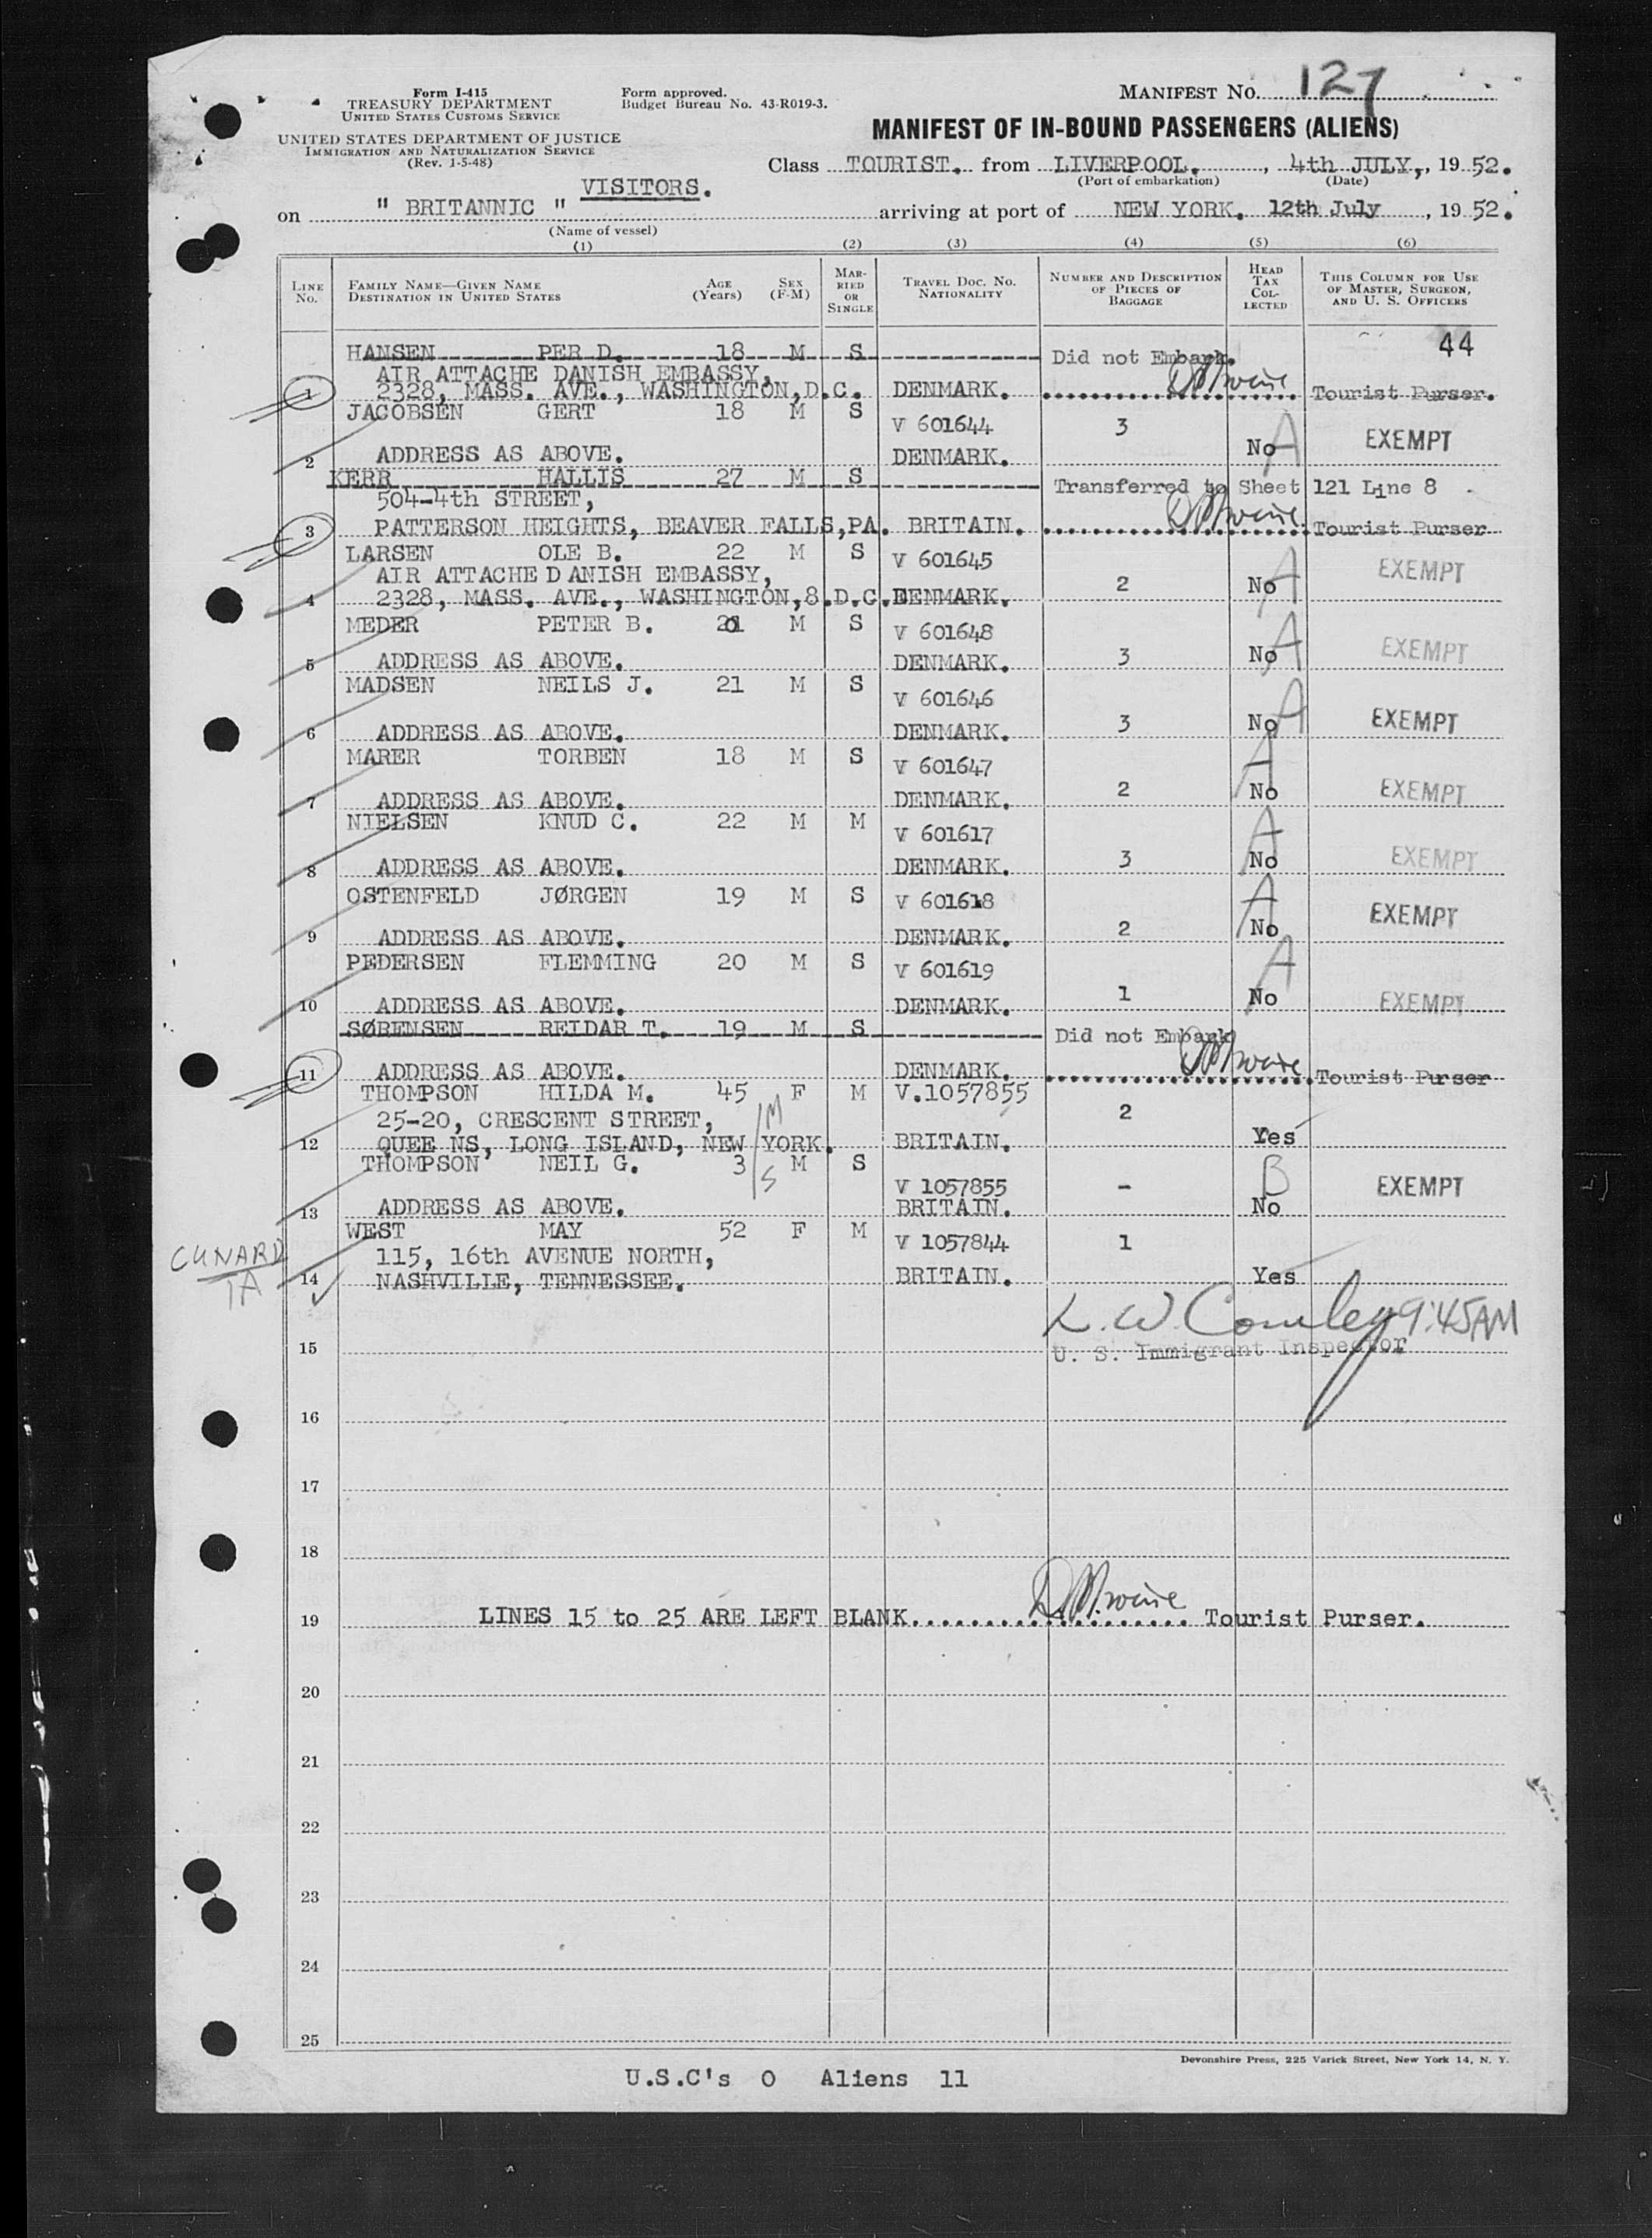 Form I-415
TREASURY DEPARTMENT
UNITED STATES CUSTOMS SERVICE
UNITED STATES DEPARTMENT OF JUSTICE
IMMIGRATION AND NATURALIZATION SERVICE
(Rev. 1-5-48)
Form approved.
Budget Bureau No. 43-R019-3.
MANIFEST NO. 127
MANIFEST OF IN-BOUND PASSENGERS (ALIENS)
Class TOURIST. from LIVERPOOL. , 4th JULY, , 19 52.
(Port of embarkation) (Date)
VISITORS.
on " BRITANNIC " arriving at port of NEW YORK. 12th July , 19 52.
(Name of vessel)
(1) (2) (3) (4) (5) (6)
LINE No. FAMILY NAME—GIVEN NAME DESTINATION IN UNITED STATES AGE (Years) SEX (F-M) MARRIED OR SINGLE TRAVEL DOC. NO. NATIONALITY NUMBER AND DESCRIPTION OF PIECES OF BAGGAGE HEAD TAX COLLECTED THIS COLUMN FOR USE OF MASTER, SURGEON, AND U. S. OFFICERS
44
HANSEN PER D. 18 M S Did not Embark.
AIR ATTACHE DANISH EMBASSY,
1 2328, MASS. AVE., WASHINGTON,D.C. DENMARK. Tourist Purser.
JACOBSEN GERT 18 M S V 601644 3 No A EXEMPT
2 ADDRESS AS ABOVE. DENMARK.
KERR HALLIS 27 M S Transferred to Sheet 121 Line 8
504-4th STREET,
3 PATTERSON HEIGHTS, BEAVER FALLS,PA. BRITAIN. Tourist Purser
LARSEN OLE B. 22 M S V 601645
AIR ATTACHE DANISH EMBASSY, 2 No A EXEMPT
4 2328, MASS. AVE., WASHINGTON,8.D.C. DENMARK.
MEDER PETER B. 21 M S V 601648
5 ADDRESS AS ABOVE. DENMARK. 3 No A EXEMPT
MADSEN NEILS J. 21 M S V 601646
6 ADDRESS AS ABOVE. DENMARK. 3 No A EXEMPT
MARER TORBEN 18 M S V 601647
7 ADDRESS AS ABOVE. DENMARK. 2 No A EXEMPT
NIELSEN KNUD C. 22 M M V 601617
8 ADDRESS AS ABOVE. DENMARK. 3 No A EXEMPT
OSTENFELD JØRGEN 19 M S V 601618
9 ADDRESS AS ABOVE. DENMARK. 2 No A EXEMPT
PEDERSEN FLEMMING 20 M S V 601619
10 ADDRESS AS ABOVE. DENMARK. 1 No A EXEMPT
SØRENSEN REIDAR T. 19 M S Did not Embark
11 ADDRESS AS ABOVE. DENMARK. Tourist Purser
THOMPSON HILDA M. 45 F M V.1057855
25-20, CRESCENT STREET, M 2
12 QUEENS, LONG ISLAND, NEW YORK. BRITAIN. Yes
THOMPSON NEIL G. 3 M S V 1057855 - B EXEMPT
S
13 ADDRESS AS ABOVE. BRITAIN. No
WEST MAY 52 F M V 1057844 1
CUNARD
115, 16th AVENUE NORTH,
14 NASHVILLE, TENNESSEE. BRITAIN. Yes
1A
L. W. Conley 9:45AM
15 U. S. Immigrant Inspector
16
17
18
19 LINES 15 to 25 ARE LEFT BLANK.................... Tourist Purser.
20
21
22
23
24
25
Devonshire Press, 225 Varick Street, New York 14, N. Y.
U.S.C's 0 Aliens 11